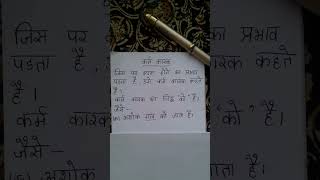 कर्म कारक
जिस पर क्रिया होने का प्रभाव
पडता है उसे कर्म कारक कहते
है।
कर्म कारक का चिह्न "को" है।
जैसे-
(क) अशोक गाना को गाता है।
जिस पर का प्रभाव
पडता है, कारक कहते
है।
कर्म कारक "को" है।
जैसे
(क) अशोक गाता है।